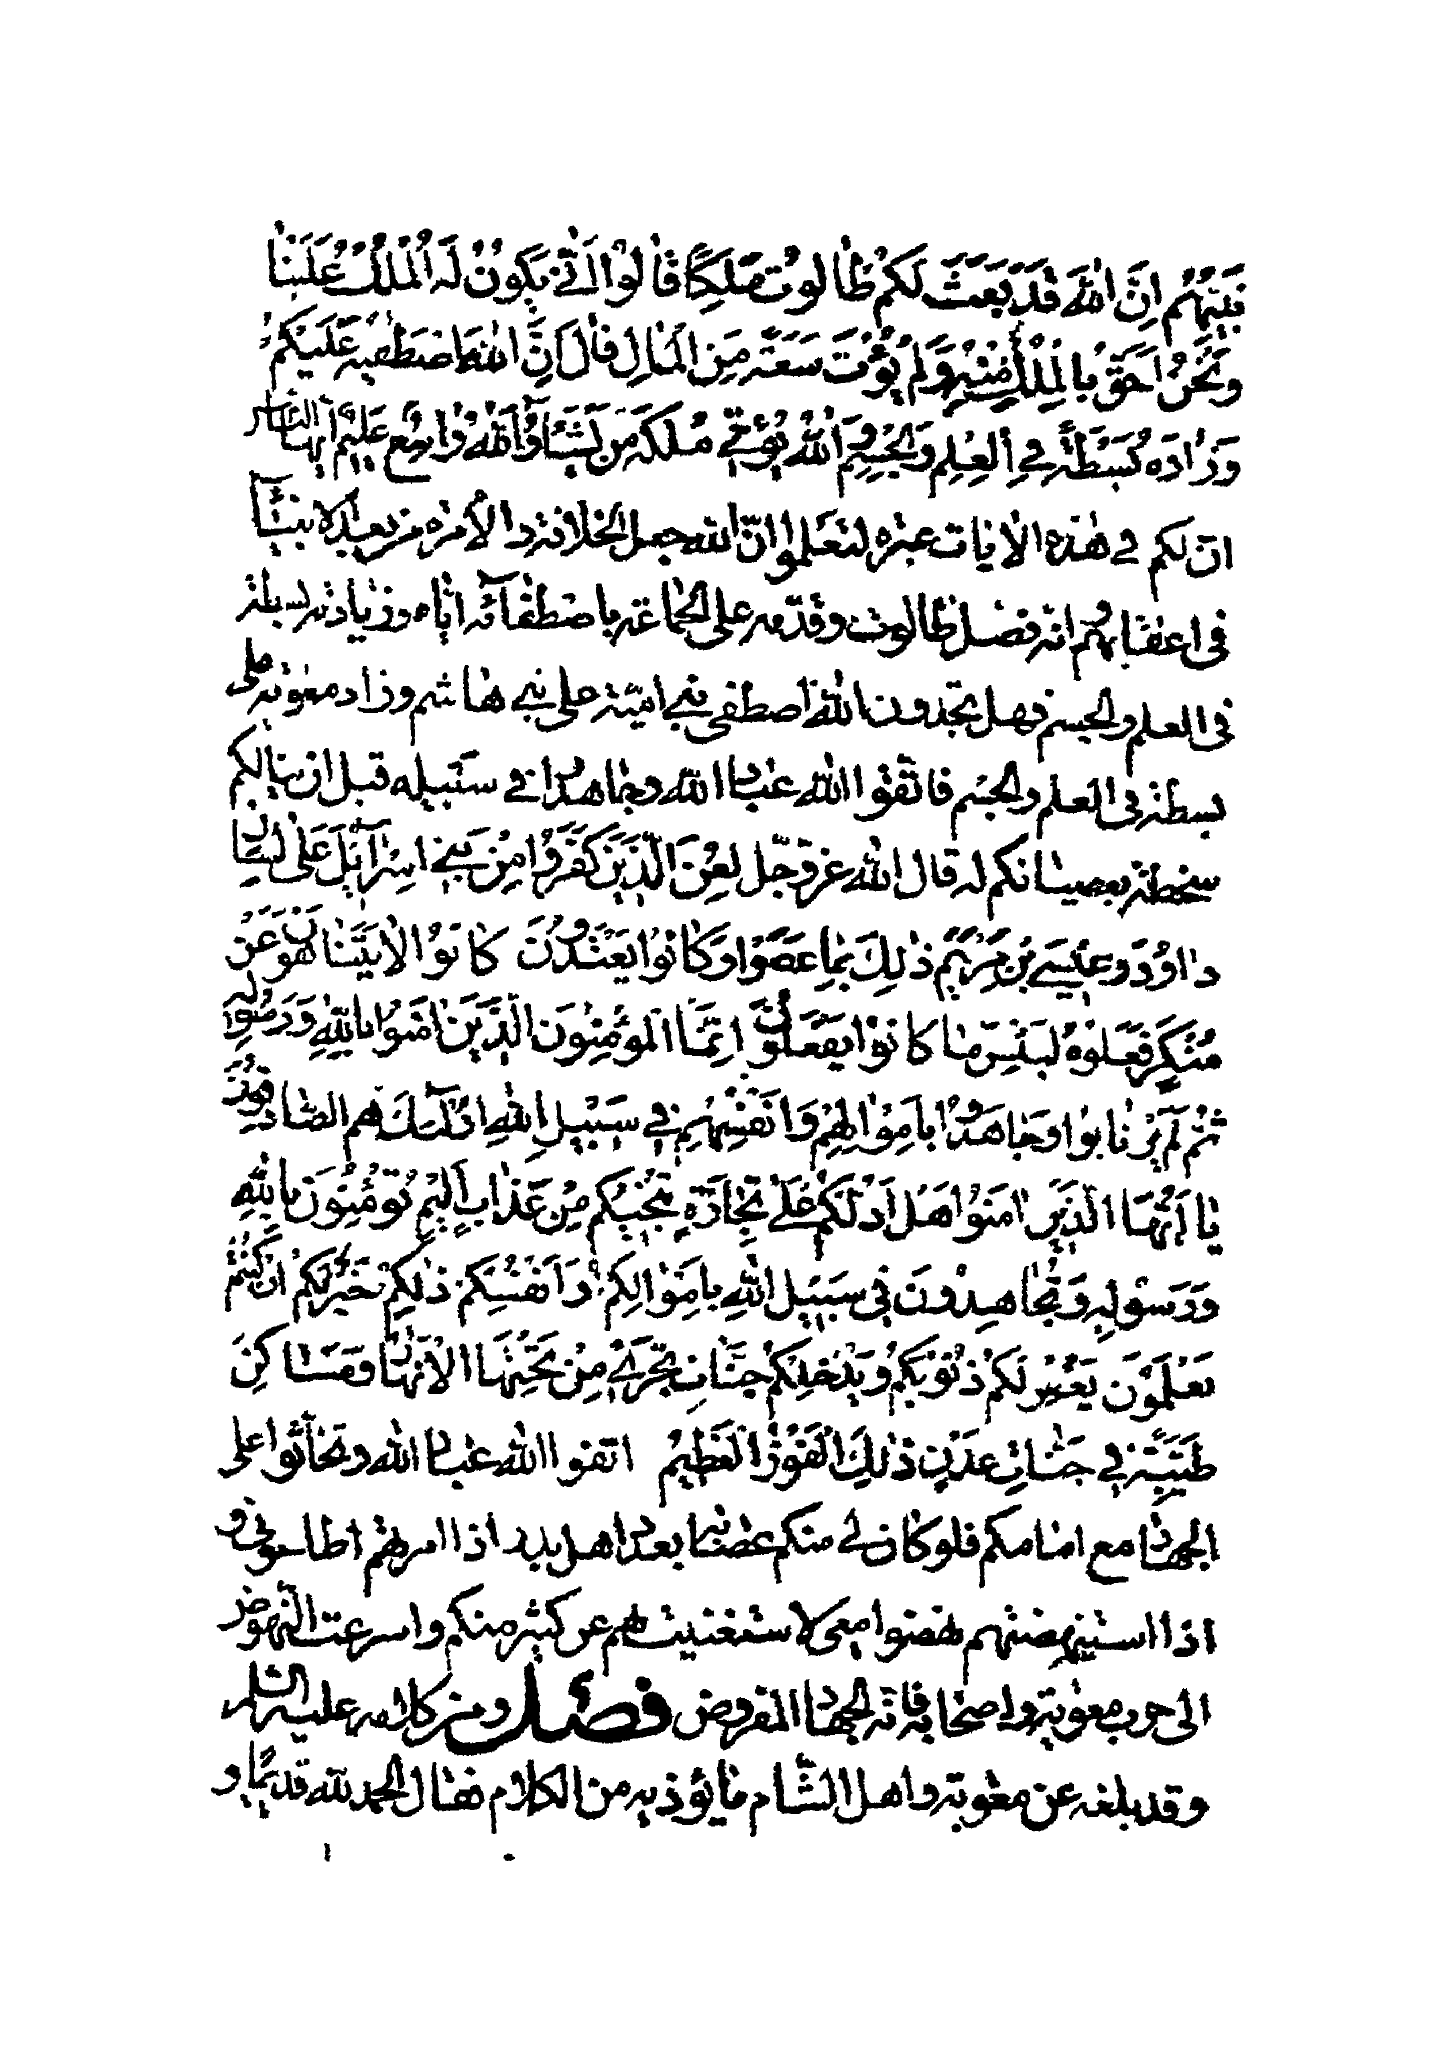 نَبِيُّهُم اِنَّ اللهَ قَدْ بَعَثَ لَكُم طالُوتَ مَلِكًا قالُوا اَنّٰى يَكُونُ لَهُ المُلْكُ عَلَيْنا
وَنَحْنُ اَحَقُّ بِالمُلْكِ مِنْهُ وَلَمْ يُؤْتَ سَعَةً مِنَ المالِ قالَ اِنَّ اللهَ اصْطَفٰیهُ عَلَيْكُمْ
وَزادَهُ بَسْطَةً فِي العِلْمِ وَالجِسْمِ وَاللهُ يُؤْتِي مُلْكَهُ مَنْ يَشَآءُ وَاللهُ واسِعٌ عَلِيمٌ ايّها النّاس
انّ لكم في هذه الايات عبرة لتعلموا انّ الله جعل الخلافة والامرة من بعد الانبيآء
فى اعقابهم وانّه فضّل طالوت وقدّمه على الجماعة باصطفآئه ايّاه وزيادته بسطة
فى العلم والجسم فهل تجدون الله اصطفى بني اميّة على بني هاشم وزاد معوية علىّ
بسطة فى العلم والجسم فاتّقوا الله عباد الله وجاهدوا في سبيله قبل ان ينالكم
سخطه بعصيانكم له قال الله عزّ وجلّ لُعِنَ الَّذينَ كَفَرُوا مِنْ بَنِي اسرآئيلَ عَلى لِسانِ
داوُدَ وَعيسَى بْنِ مَرْيَمَ ذٰلِكَ بِما عَصَوْا وَكانُوا يَعْتَدُونَ كانُوا لا يَتَناهَوْنَ عَنْ
مُنْكَرٍ فَعَلُوهُ لَبِئْسَ ما كانُوا يَفْعَلُونَ اِنَّمَا المُؤْمِنُونَ الَّذينَ امَنُوا بِاللهِ وَرَسُولِهِ
ثُمَّ لَمْ يَرْتابُوا وَجاهَدُوا بِاَمْوالِهِمْ وَاَنْفُسِهِمْ في سَبيلِ اللهِ اُولٰٓئِكَ هُم الصّادِقُونَ
يا اَيُّهَا الَّذينَ امَنُوا هَلْ اَدُلُّكُمْ عَلى تِجارَةٍ تُنْجيكُمْ مِنْ عَذابٍ اَليمٍ تُؤْمِنُونَ بِاللهِ
وَرَسُولِهِ وَتُجاهِدُونَ فى سَبيلِ اللهِ بِاَمْوالِكُمْ وَاَنْفُسِكُمْ ذٰلِكُمْ خَيْرٌ لَكُمْ اِنْ كُنْتُمْ
تَعْلَمُونَ يَغْفِرْ لَكُمْ ذُنُوبَكُمْ وَيُدْخِلْكُمْ جَنّاتٍ تَجْري مِنْ تَحْتِهَا الاَنْهارُ وَمَساكِنَ
طَيِّبَةً في جَنّاتِ عَدْنٍ ذٰلِكَ الفَوْزُ العَظيمُ اتّقوا الله عباد الله وتحاثّوا على
الجهاد مع امامكم فلو كان لي منكم عصابة بعدد اهل بدر اذا امرتهم اطاعوني و
اذا استنهضتهم نهضوا معى لاستغنيت بهم عن كثير منكم واسرعت النّهوض
الى حرب معوية واصحابه فانّه الجهاد المفروض فصل ومن كلامه عليه السّلام
وقد بلغه عن معوية واهل الشّام ما يؤذيه من الكلام فقال الحمد لله قديمًا و